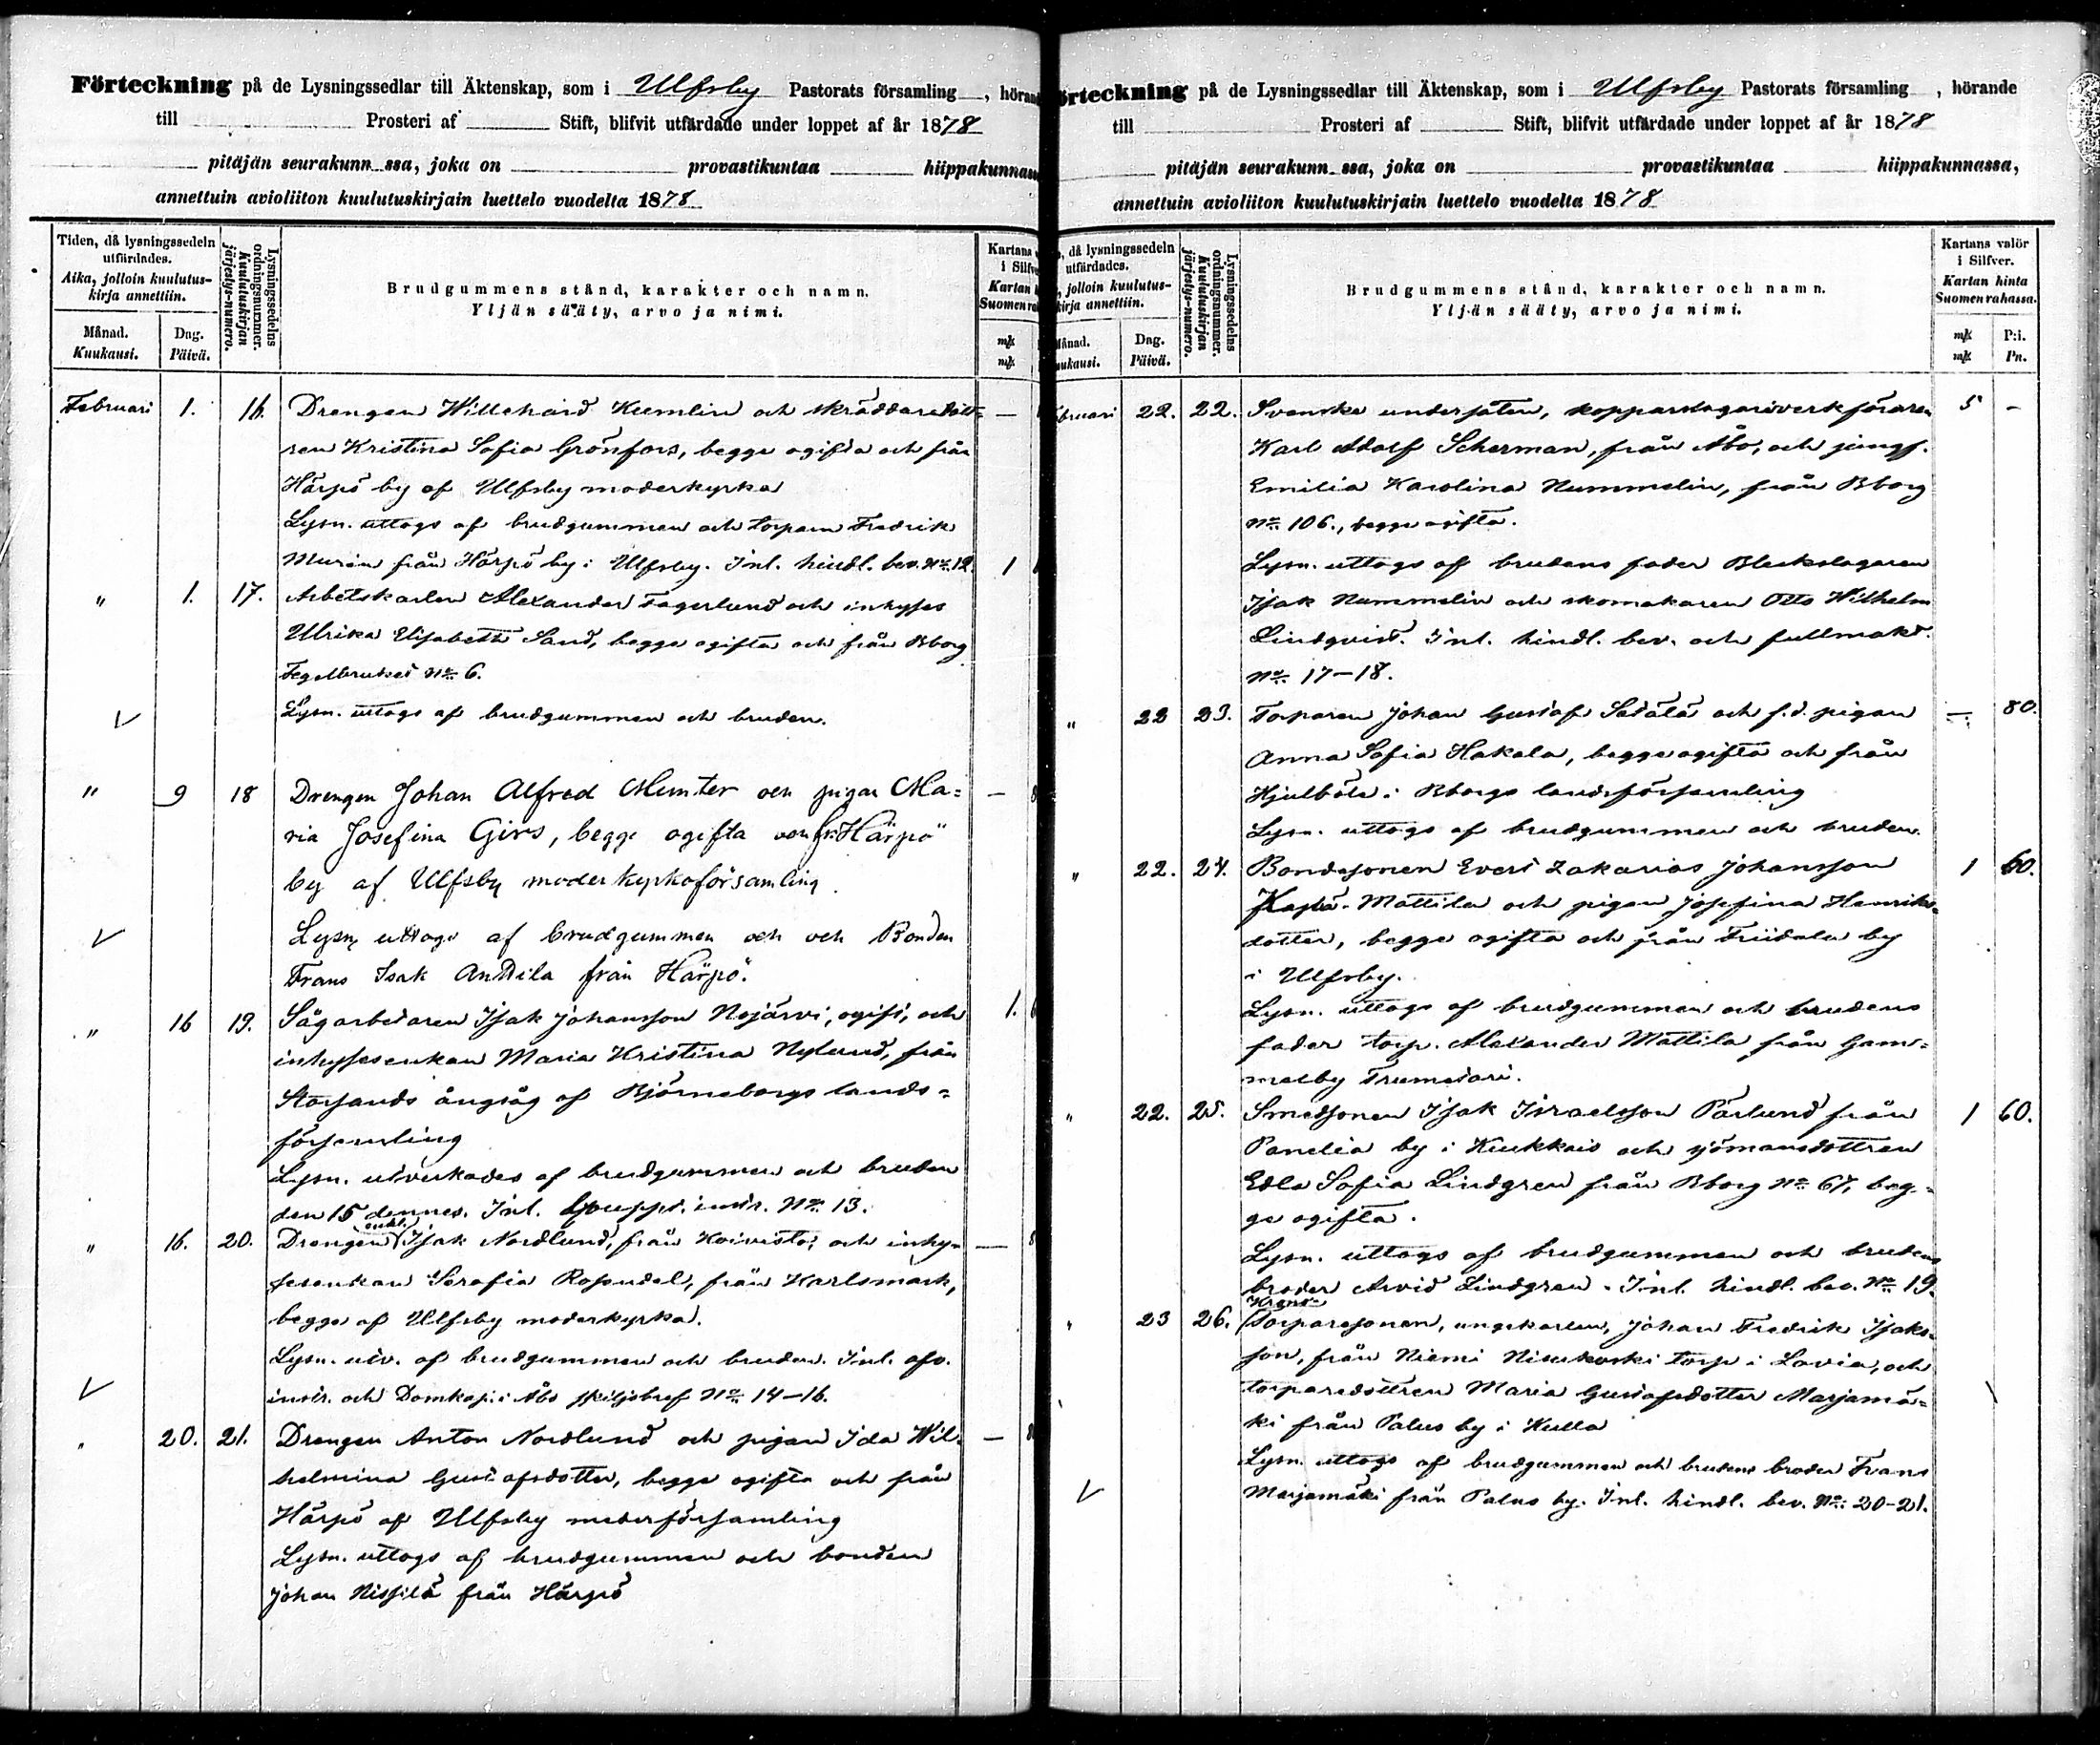 Förteckning på de Lysningssedlar till Äktenskap, som i Ulfsby Pastorats församling, höran
till Prosteri af Stift, blifvit utfärdade under loppet af år 1878
pitäjän seurakunn ssa, joka on provastikuntaa hiippakunnas
annettuin avioliiton kuulutuskirjain luettelo vuodelta 1878
Tiden, då lysningssedeln utfärdades.
Aika, jolloin kuulutus-kirja annettiin.
Månad. Kuukausi.
Dag. Päivä.
Lysningssedelns ordningsnummer. Kuulutuskirjan järjestys-numero.
Brudgummens stånd, karakter och namn.
Yljän sääty, arvo ja nimi.
Kartans v
i Silfve
Kartan h
Suomen ra
mk
mk
Februari 1. 16. Drengen Willehard Kumlin och skräddaredött- —
ren Kristina Sofia Grönfors, begge ogifta och från
Härpö by af Ulfsby moderkyrka
Lysn. uttogs af brudgummen och torparn Fredrik
Murén från Härpö by i Ulfsby. Inl. hindl. bev. No 12. 1
" 1. 17. Arbetskarlen Alexander Fagerlund och inhyses
Ulrika Elisabeth Sand, begge ogifta och från Bborg
Tegelbruket No 6.
Lysn. uttogs af brudgummen och bruden.
" 9 18 Drengen Johan Alfred Munter och pigan Ma= —
ria Josefina Girs, begge ogifta och fr. Härpö
by af Ulfsby moderkyrkoförsamling.
Lysn. uttogs af brudgummen och och Bonden
Frans Isak Anttila från Härpö.
" 16 19. Sågarbetaren Isak Johansson Nojärvi, ogift, och 1.
inhysesenkan Maria Kristina Nylund, från
Storsands ångsåg af Björneborgs lands=
församling
Lysn. utverkades af brudgummen och bruden
den 15 dennes. Inl. instr. No 13.
" 16. 20. Drengen enkl. Isak Nordlund, från Koivisto, och inhy- —
sesenkan Serafia Rosendel, från Karlsmark,
begge af Ulfsby moderkyrka.
Lysn. utv. af brudgummen och bruden. Inl. afv.
instr. och Domkap. i Åbo skiljobref No 14–16.
" 20. 21. Drengen Anton Nordlund och pigan Ida Wil- —
helmina Gustafsdotter, begge ogifta och från
Härpö af Ulfsby moderförsamling
Lysn. uttogs af brudgummen och bonden
Johan Nissilä från Härpö
örteckning på de Lysningssedlar till Äktenskap, som i Ulfsby Pastorats församling, hörande
till Prosteri af Stift, blifvit utfärdade under loppet af år 1878
pitäjän seurakunn ssa, joka on provastikuntaa hiippakunnassa,
annettuin avioliiton kuulutuskirjain luettelo vuodelta 1878
, då lysningssedeln utfärdades.
, jolloin kuulutus-kirja annettiin.
Månad. uukausi.
Dag. Päivä.
Lysningssedelns ordningsnummer. Kuulutuskirjan järjestys-numero.
Brudgummens stånd, karakter och namn.
Yljän sääty, arvo ja nimi.
Kartans valör
i Silfver.
Kartan hinta
Suomen rahassa.
mk P:i.
mk Pn.
bruari 22. 22. Svenske undersåten, kopparslagareverkföraren 5 –
Karl Adolf Scherman, från Åbo, och jungf.
Emilia Karolina Nummelin, från Bborg
No 106., begge ogifta.
Lysn. uttogs af brudens fader Bleckslagaren
Isak Nummelin och skomakaren Otto Wilhelm
Lindqvist. Inl. hindl. bev. och fullmakt.
No 17–18.
" 22 23. Torparen Johan Gustaf Satälä och f.d. pigan — 80.
Anna Sofia Hakala, begge ogifta och från
Hjulböle i Bborgs landsförsamling
Lysn. uttogs af brudgummen och bruden.
" 22. 24. Bondesonen Evert Zakarias Johansson 1 60.
Mattila och pigan Josefina Henriks-
dotter, begge ogifta och från Friidala by
i Ulfsby.
Lysn. uttogs af brudgummen och brudens
fader torp. Alexander Mattila från Gam=
melby Trumetari.
" 22. 25. Smedsonen Isak Israelsson Parlund från 1 60.
Panelia by i Kiukkais och sjömansdottren
Edla Sofia Lindgren från Bborg No 67, beg-
ge ogifta.
Lysn. uttogs af brudgummen och brudens
broder Arvid Lindgren. Inl. hindl. bev. No 19.
" 23 26. Krono- Torparesonen, ungekarlen, Johan Fredrik Isaks-
son, från Niemi torp i Lavia, och
torparedottren Maria Gustafsdotter Marjamä-
ki från Palus by i Kulla
Lysn. uttogs af brudgummen och brudens broder Frans
Marjamäki från Palus by. Inl. hindl. bev. No: 20–21.